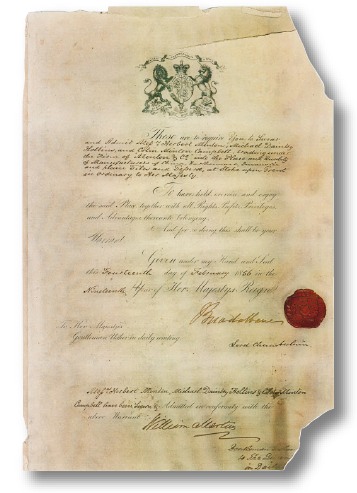 These are to require you to Swear
and Admit Messrs Herbert Minton, Michael Daintry
Hollins, and Colin Minton Campbell, trading under
the Firm of Minton & Co. into the Place and Quality
of Manufacturers of China, Earthenware
and plain Tiles and at Stoke upon Trent
in Ordinary to Her Majesty
To have hold exercise and enjoy
the said Place together with all Rights Profits Privileges
and Advantages thereunto belonging.
And for so doing this shall be your
Warrant
Given under my Hand and Seal
this Fourteenth day of February 1856 in the
Nineteenth Year of Her Majesty's Reign
Breadalbane
To Her Majesty's
Gentleman Usher in daily waiting
Lord Chamberlain
Messrs Herbert Minton, Michael Daintry Hollins & Colin Minton
Campbell have been Sworn & Admitted in conformity with the
above Warrant
William Martins
Gentleman Usher
to the